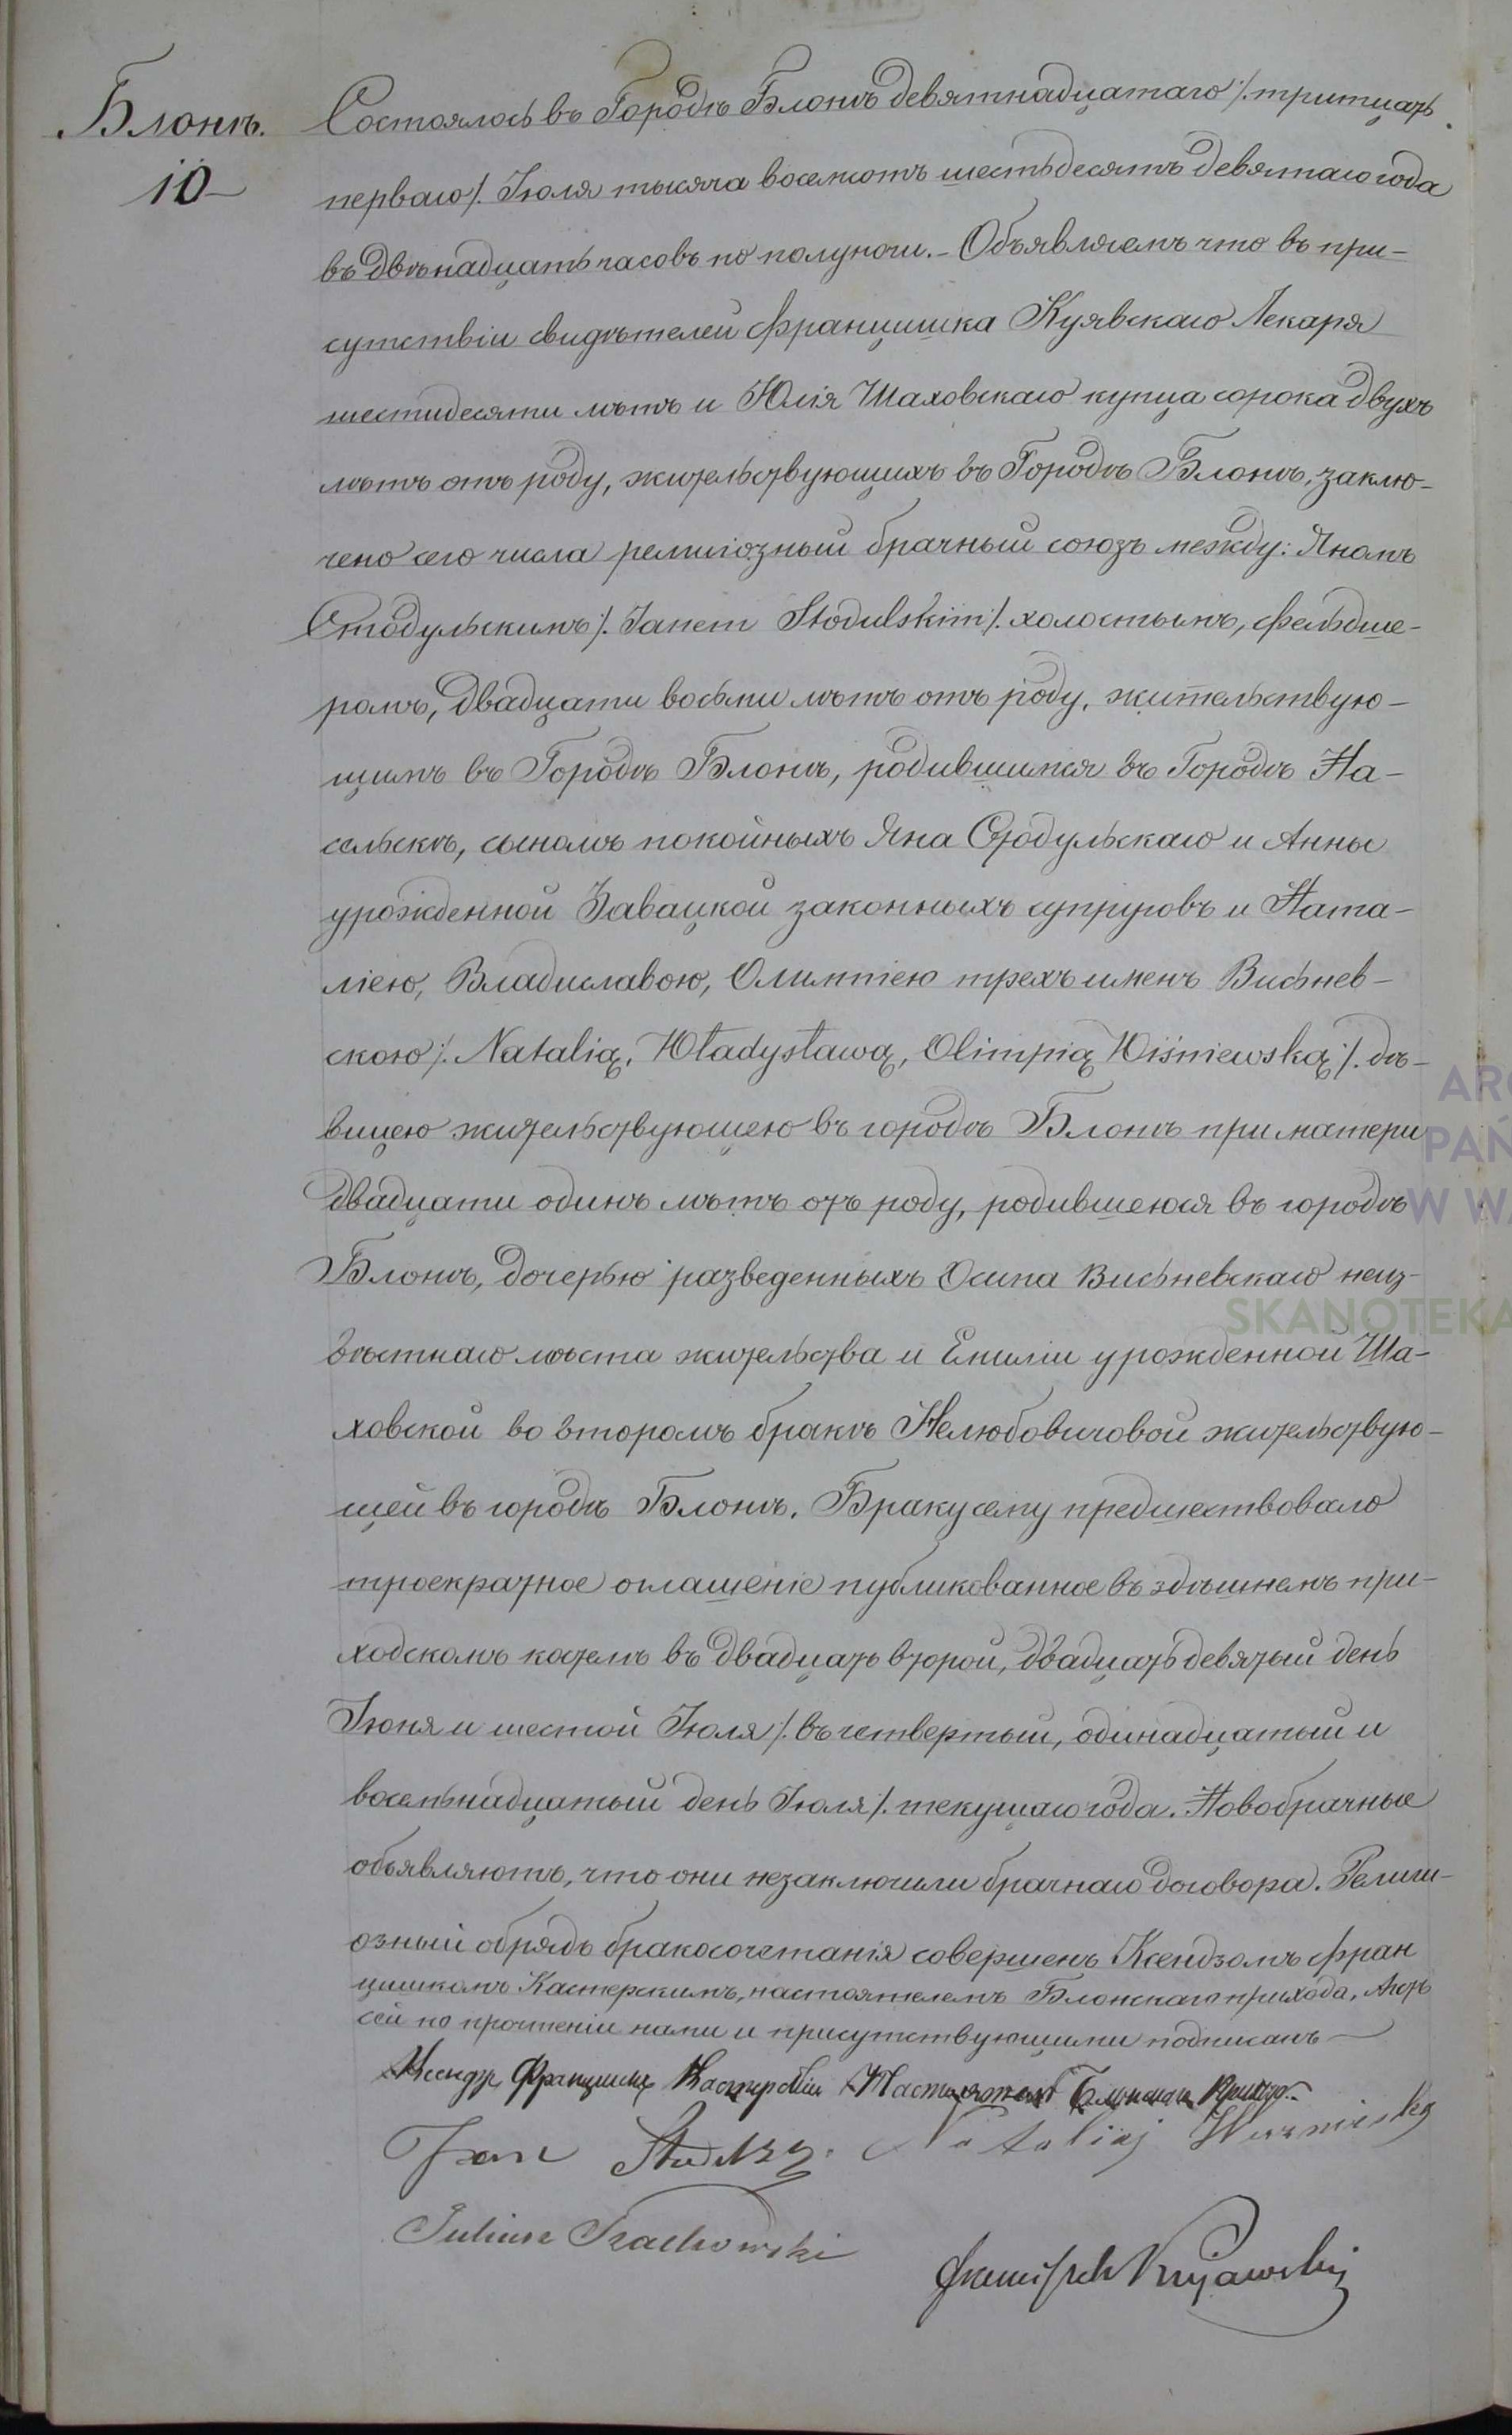 Блонѣ.
10
Состоялось въ Городѣ Блонѣ девятнадцатаго /. тритцать
перваго /. Іюля тысяча восемсотъ шестьдесятъ девятаго года
въ двѣнадцать часовъ по полуночи. - Объявляемъ что въ при-
сутствіи свидѣтелей Францишка Куявскаго Лекаря
шестидесяти лѣтъ и Юлія Шаховскаго купца сорока двухъ
лѣтъ отъ роду, жительствующихъ въ Городѣ Блонѣ, заклю-
чено сего числа религіозный брачный союзъ между: Яномъ
Стодульскимъ /. Janem Stodulskim /. холостымъ, фельдше-
ромъ, двадцати восьми лѣтъ отъ роду, жительствую-
щимъ въ Городѣ Блонѣ, родившимся въ Городѣ На-
сельскѣ, сыномъ покойныхъ Яна Стодульскаго и Анны
урожденной Завацкой законныхъ супруговъ и Ната-
ліею, Владиславою, Олимпіею трехъ именъ Висьнев-
скою /. Natalią, Władysławą, Olimpią Wiśniewską /. дѣ-
вицею жительствующею въ городѣ Блонѣ при матери
двадцати одинъ лѣтъ отъ роду, родившеюся въ городѣ
Блонѣ, дочерью разведенныхъ Осипа Висьневскаго неиз-
вѣстнаго мѣста жительства и Емиліи урожденной Ша-
ховской во второмъ бракѣ Нелюбовичовой жительствую-
щей въ городѣ Блонѣ. Браку сему предшествовало
троекратное оглашеніе публикованное въ здѣшнемъ при-
ходскомъ костелѣ въ двадцать второй, двадцать девятый день
Іюня и шестой Іюля /. въ четвертый, одинадцатый и
восемьнадцатый день Іюля /. текущаго года. Новобрачные
объявляютъ, что они незаключили брачнаго договора. Религи-
озный обрядъ бракосочетанія совершенъ Ксендзомъ Фран
цишкомъ Кастерскимъ, настоятелемъ Блонскаго прихода, Актъ
сей по прочтеніи нами и присутствующими подписанъ
Ксендзъ Францишекъ Кастерскій Настоятель Блонскаго Прихода
Jan Natalią
Juliusz Szachowski
Franciszek Kujawski
ARC
PAŃ
W WA
SKANOTEKA